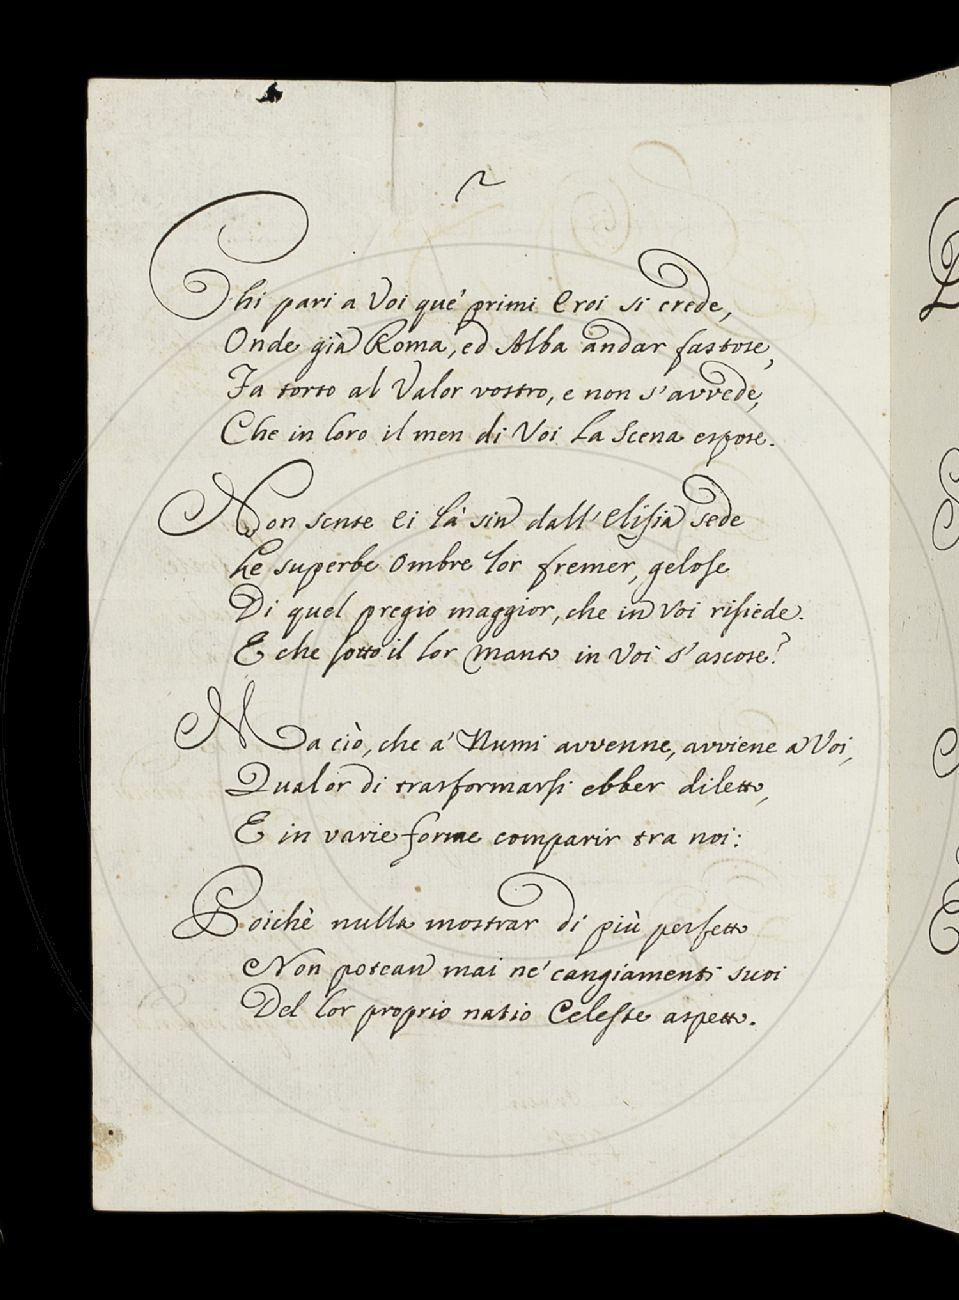 Chi pari a Voi que' primi Eroi si crede,
Onde già Roma, ed Alba andar fastose,
Fa torto al Valor vostro, e non s'avvede,
Che in loro il men di Voi la Scena espose.
Non sente ei là sin dall'Elisia sede
Le superbe Ombre lor fremer, gelose
Di quel pregio maggior, che in Voi risiede.
E che sotto il lor Manto in Voi s'ascose?
Ma ciò, che a' Numi avvenne, avviene a Voi,
Qualor di trasformarsi ebber diletto,
E in varie forme comparir tra noi:
Poichè nulla mostrar di più perfetto
Non potean mai ne' cangiamenti suoi
Del lor proprio natio Celeste aspetto.